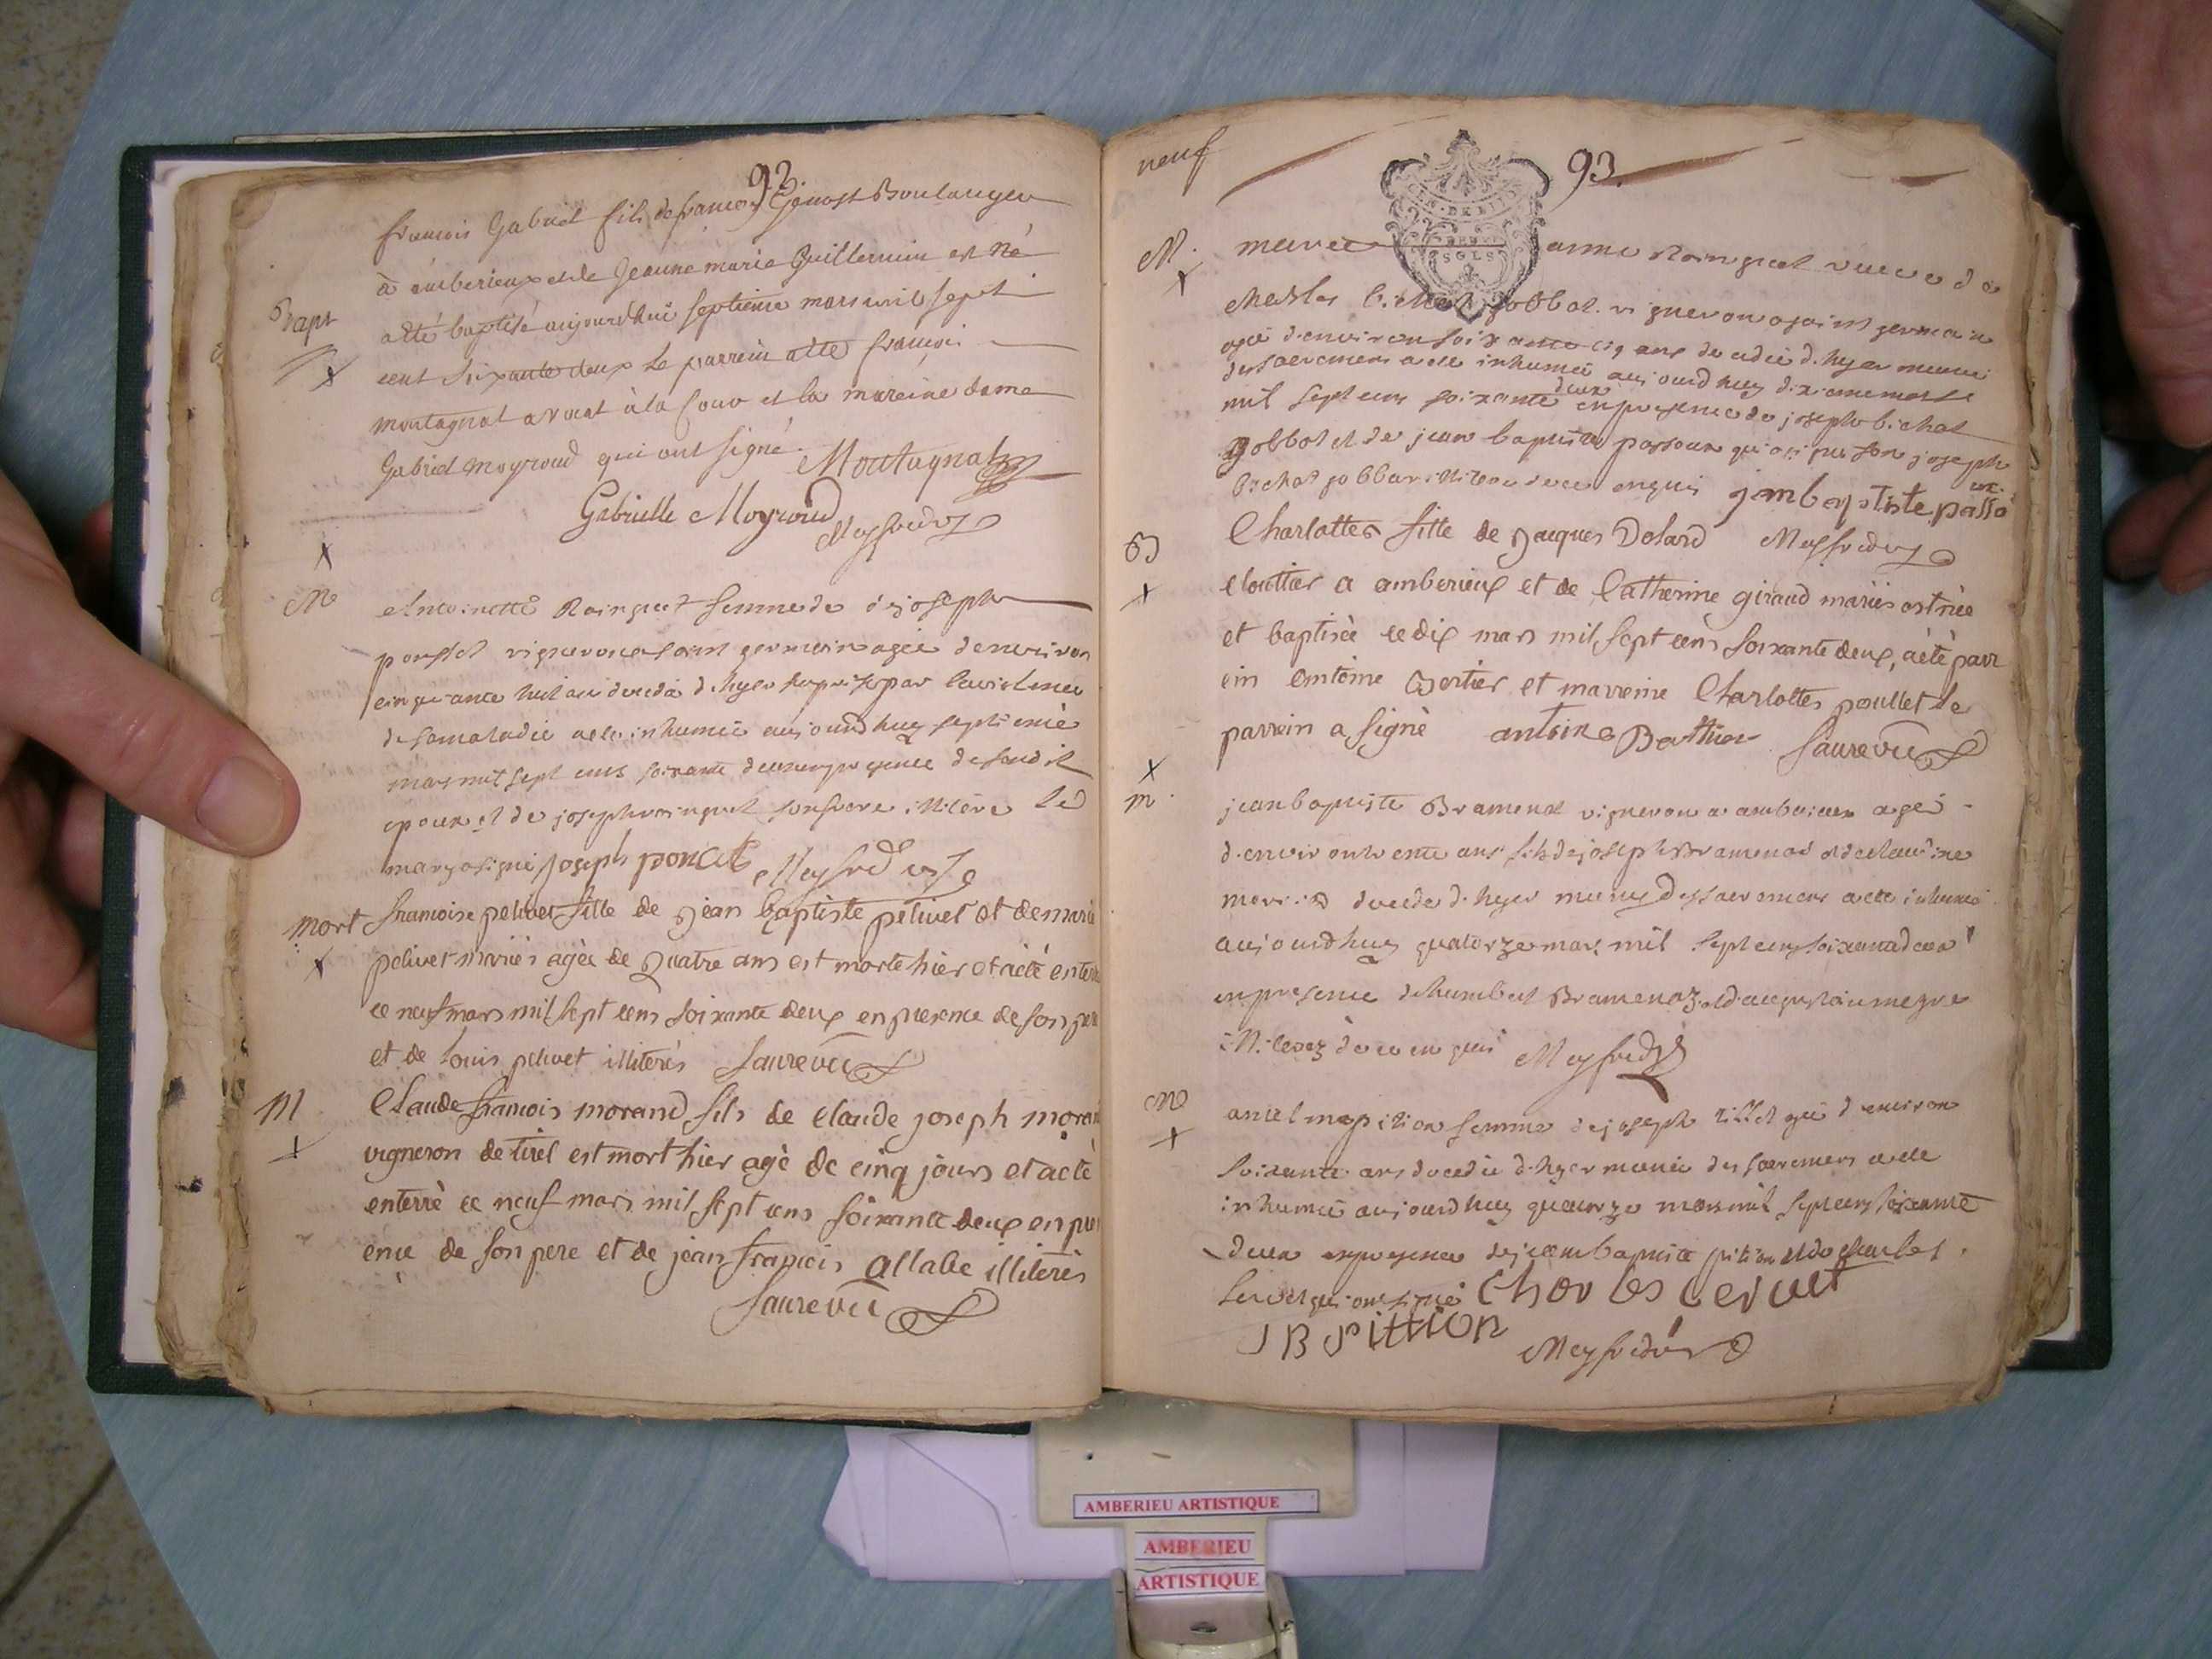 92.
françois Gabriel fils de françois Genost Boulanger
à amberieux et de Jeanne marie Guillermin est né
Bapt
a été baptisé aujourdhui septieme mars mil sept
cent soixante deux le parrein a été françois
montagnat avocat à la Cour et la mareine dame
Gabriel moyroud qui ont signé.
Montagnat
Gabrielle Moyroud
M
Antoinette Rainguet femme de joseph
ponsset vigneron a saint germain agée denviron
cinquante huit ans decedée d'hyer surprise par la violence
de sa maladie a ete inhumée aujourdhuy septieme
mars mil sept cens soixante deux en presence de sond it
epoux et de joseph rainguet son frere illiteré led
mary a signé joseph poncet
mort francoise pelivet fille de jèan baptiste pelivet et de marie
pelivet mariés agèe de quatre ans est morte hier et a èté enterr
ce neuf mars mil sept cens soixante deux en presence de son pere
et de Louis pelivet illiterès Saurevei
M
Claude francois morand fils de claude joseph moran
vigneron de tiret est mort hier agè de cinq jours et a èté
enterrè ce neuf mars mil sept cens soixante deux en pres
ence de son pere et de jèan francois allabe illiterès
Saurevei
neuf
93.
SOLS
M.
anne Rainguet veuve de
charles bichat gobbot vigneron a saint germain
agée d'environ soixante cinq ans decedée d'hyer munie
des sacremens a ete inhumée aujourdhuy dixieme mars
mil sept cens soixante deux en presence de joseph bichat
gobbot et de jean baptiste passoux qui a signé non joseph
bichat gobbot illiteré de ce enquis janbaptiste passo
ux.
B
Charlottes fille de jacques Dolard
cloutier a amberieux et de Catherine giraud mariès est nèe
et baptisèe ce dix mars mil sept cens soixante deux, a èté parr
ein Antoine Bertier et marreine Charlottes poullet le
parrein a signè antoine Bertier Saurevei
m
jean baptiste Bramenat vigneron a amberieux agé
d'environ trente ans fils de joseph Bramenat et de claudine
decedé d'hyer muny des sacremens a ete inhumé
aujourdhuy quatorze mars mil sept cens soixante deux
en presence d'humbert Bramenaz et d'augustin megre
illiterez de ce enquis
M
pition femme de joseph tillet agée d'environ
soixante ans decedée d'hyer munie des sacremens a ete
inhumée aujourdhuy quatorze mars mil sept cens soixante
deux en presence de jean baptiste pition et de charles
servet qui ont signé Charles Cervet
JB Pittion
AMBERIEU ARTISTIQUE
AMBERIEU
ARTISTIQUE